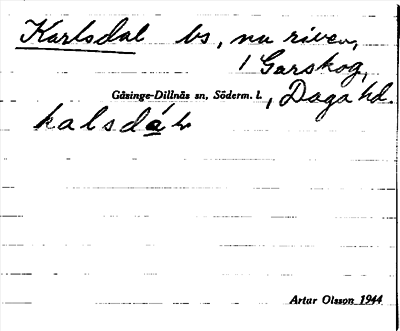 Karlsdal bs, nu riven,
1 Garskog,
Gåsinge-Dillnäs sn, Söderm. l., Daga hd.
kalsdáL
Artur Olsson 1944